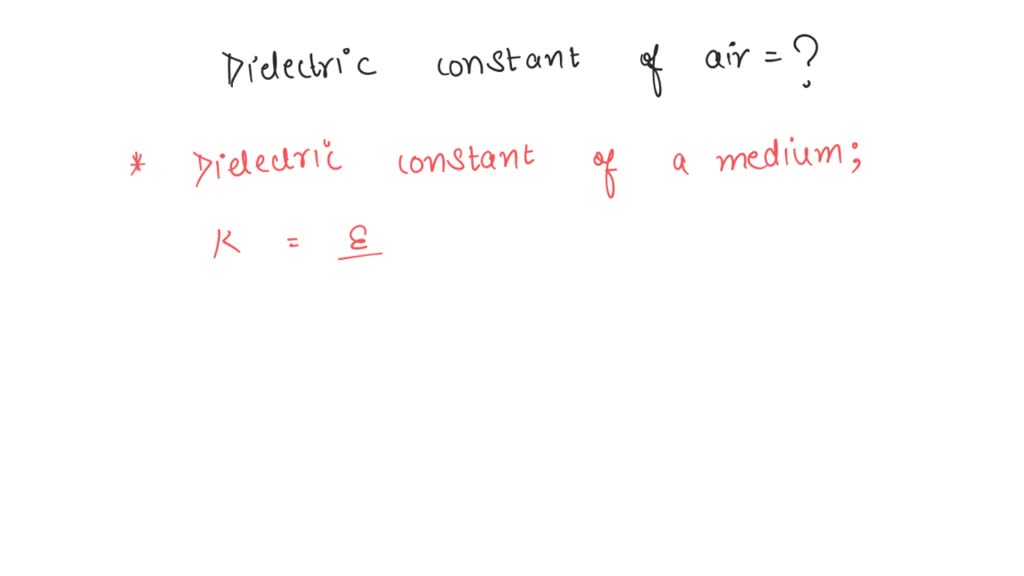 Dielectric constant of air = ?
* Dielectric constant of a medium;
K = ε